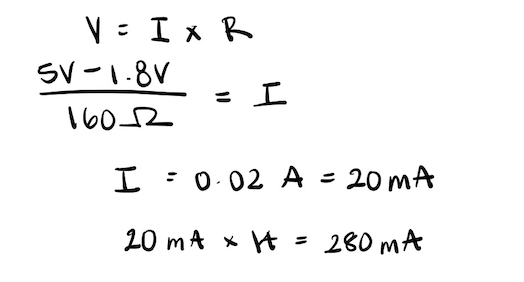 V = I x R
5V - 1.8V
160Ω
= I
I = 0.02 A = 20 mA
20 mA x 14 = 280 mA